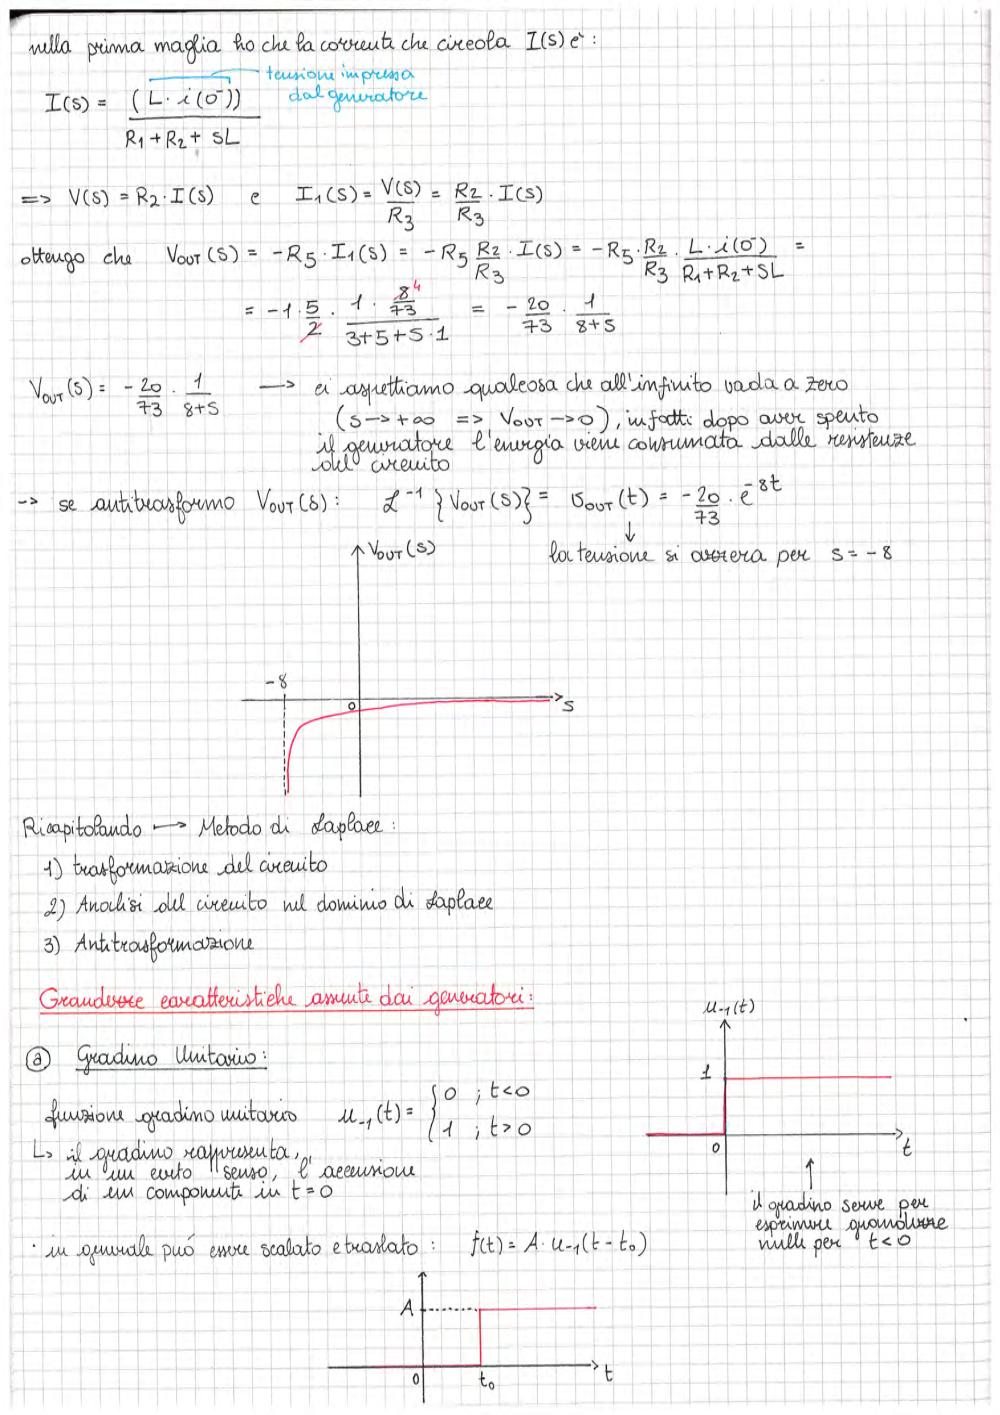 nella prima maglia ho che la corrente che circola I(s) è :
tensione impressa
dal generatore
I(s) = (L· i(0⁻)) / (R₁ + R₂ + sL)
=> V(s) = R₂· I(s) e I₁(s) = V(s)/R₃ = R₂/R₃ · I(s)
ottengo che VOUT(s) = -R₅· I₁(s) = -R₅ R₂/R₃ · I(s) = -R₅· R₂/R₃ · L· i(0⁻)/(R₁+R₂+sL) =
= -1· 5/2 · (1 · 8/73)/(3+5+s·1) = - 20/73 · 1/(8+s)
4
VOUT(s) = - 20/73 · 1/(8+s) —> ci aspettiamo qualcosa che all'infinito vada a zero
(s —> +∞ => VOUT —> 0), infatti dopo aver spento
il generatore l'energia viene consumata dalle resistenze
del circuito
-> se antitrasformo VOUT(s) : ℒ⁻¹ {VOUT(s)} = vOUT(t) = - 20/73 · e⁻⁸ᵗ
↓
la tensione si azzera per s = - 8
VOUT(s)
-8
0
s
Ricapitolando —> Metodo di Laplace :
1) trasformazione del circuito
2) Analisi del circuito nel dominio di Laplace
3) Antitrasformazione
Grandezze caratteristiche assunte dai generatori :
u₋₁(t)
1
0
t
a Gradino Unitario :
funzione gradino unitario u₋₁(t) = { 0 ; t<0
1 ; t>0
↳ il gradino rappresenta,
in un certo senso, l'"accensione
di un componente in t = 0
il gradino serve per
esprimere grandezze
nulle per t < 0
· in generale può essere scalato e traslato : f(t) = A· u₋₁(t - t₀)
A
0
t₀
t